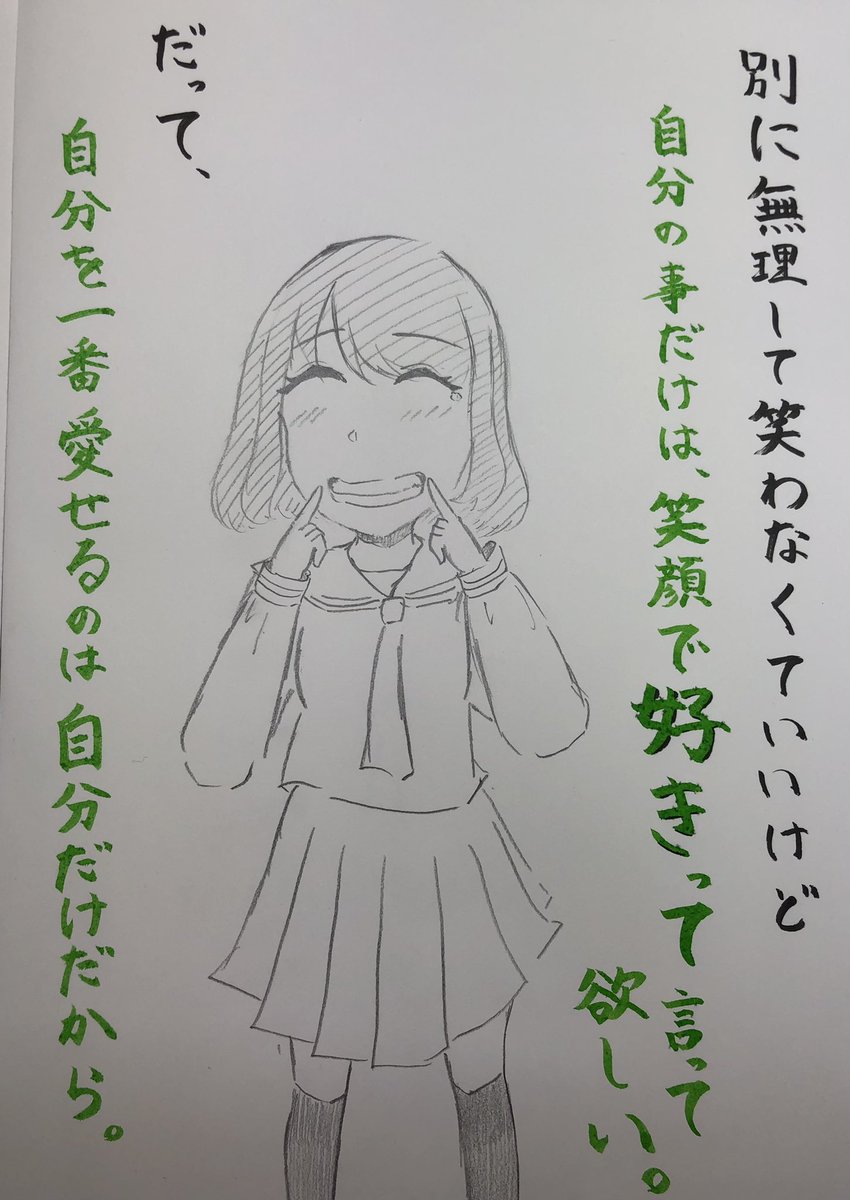 別に無理して笑わなくていいけど
自分の事だけは、笑顔で好きって言って
欲しい。
だって、
自分を一番愛せるのは自分だけだから。